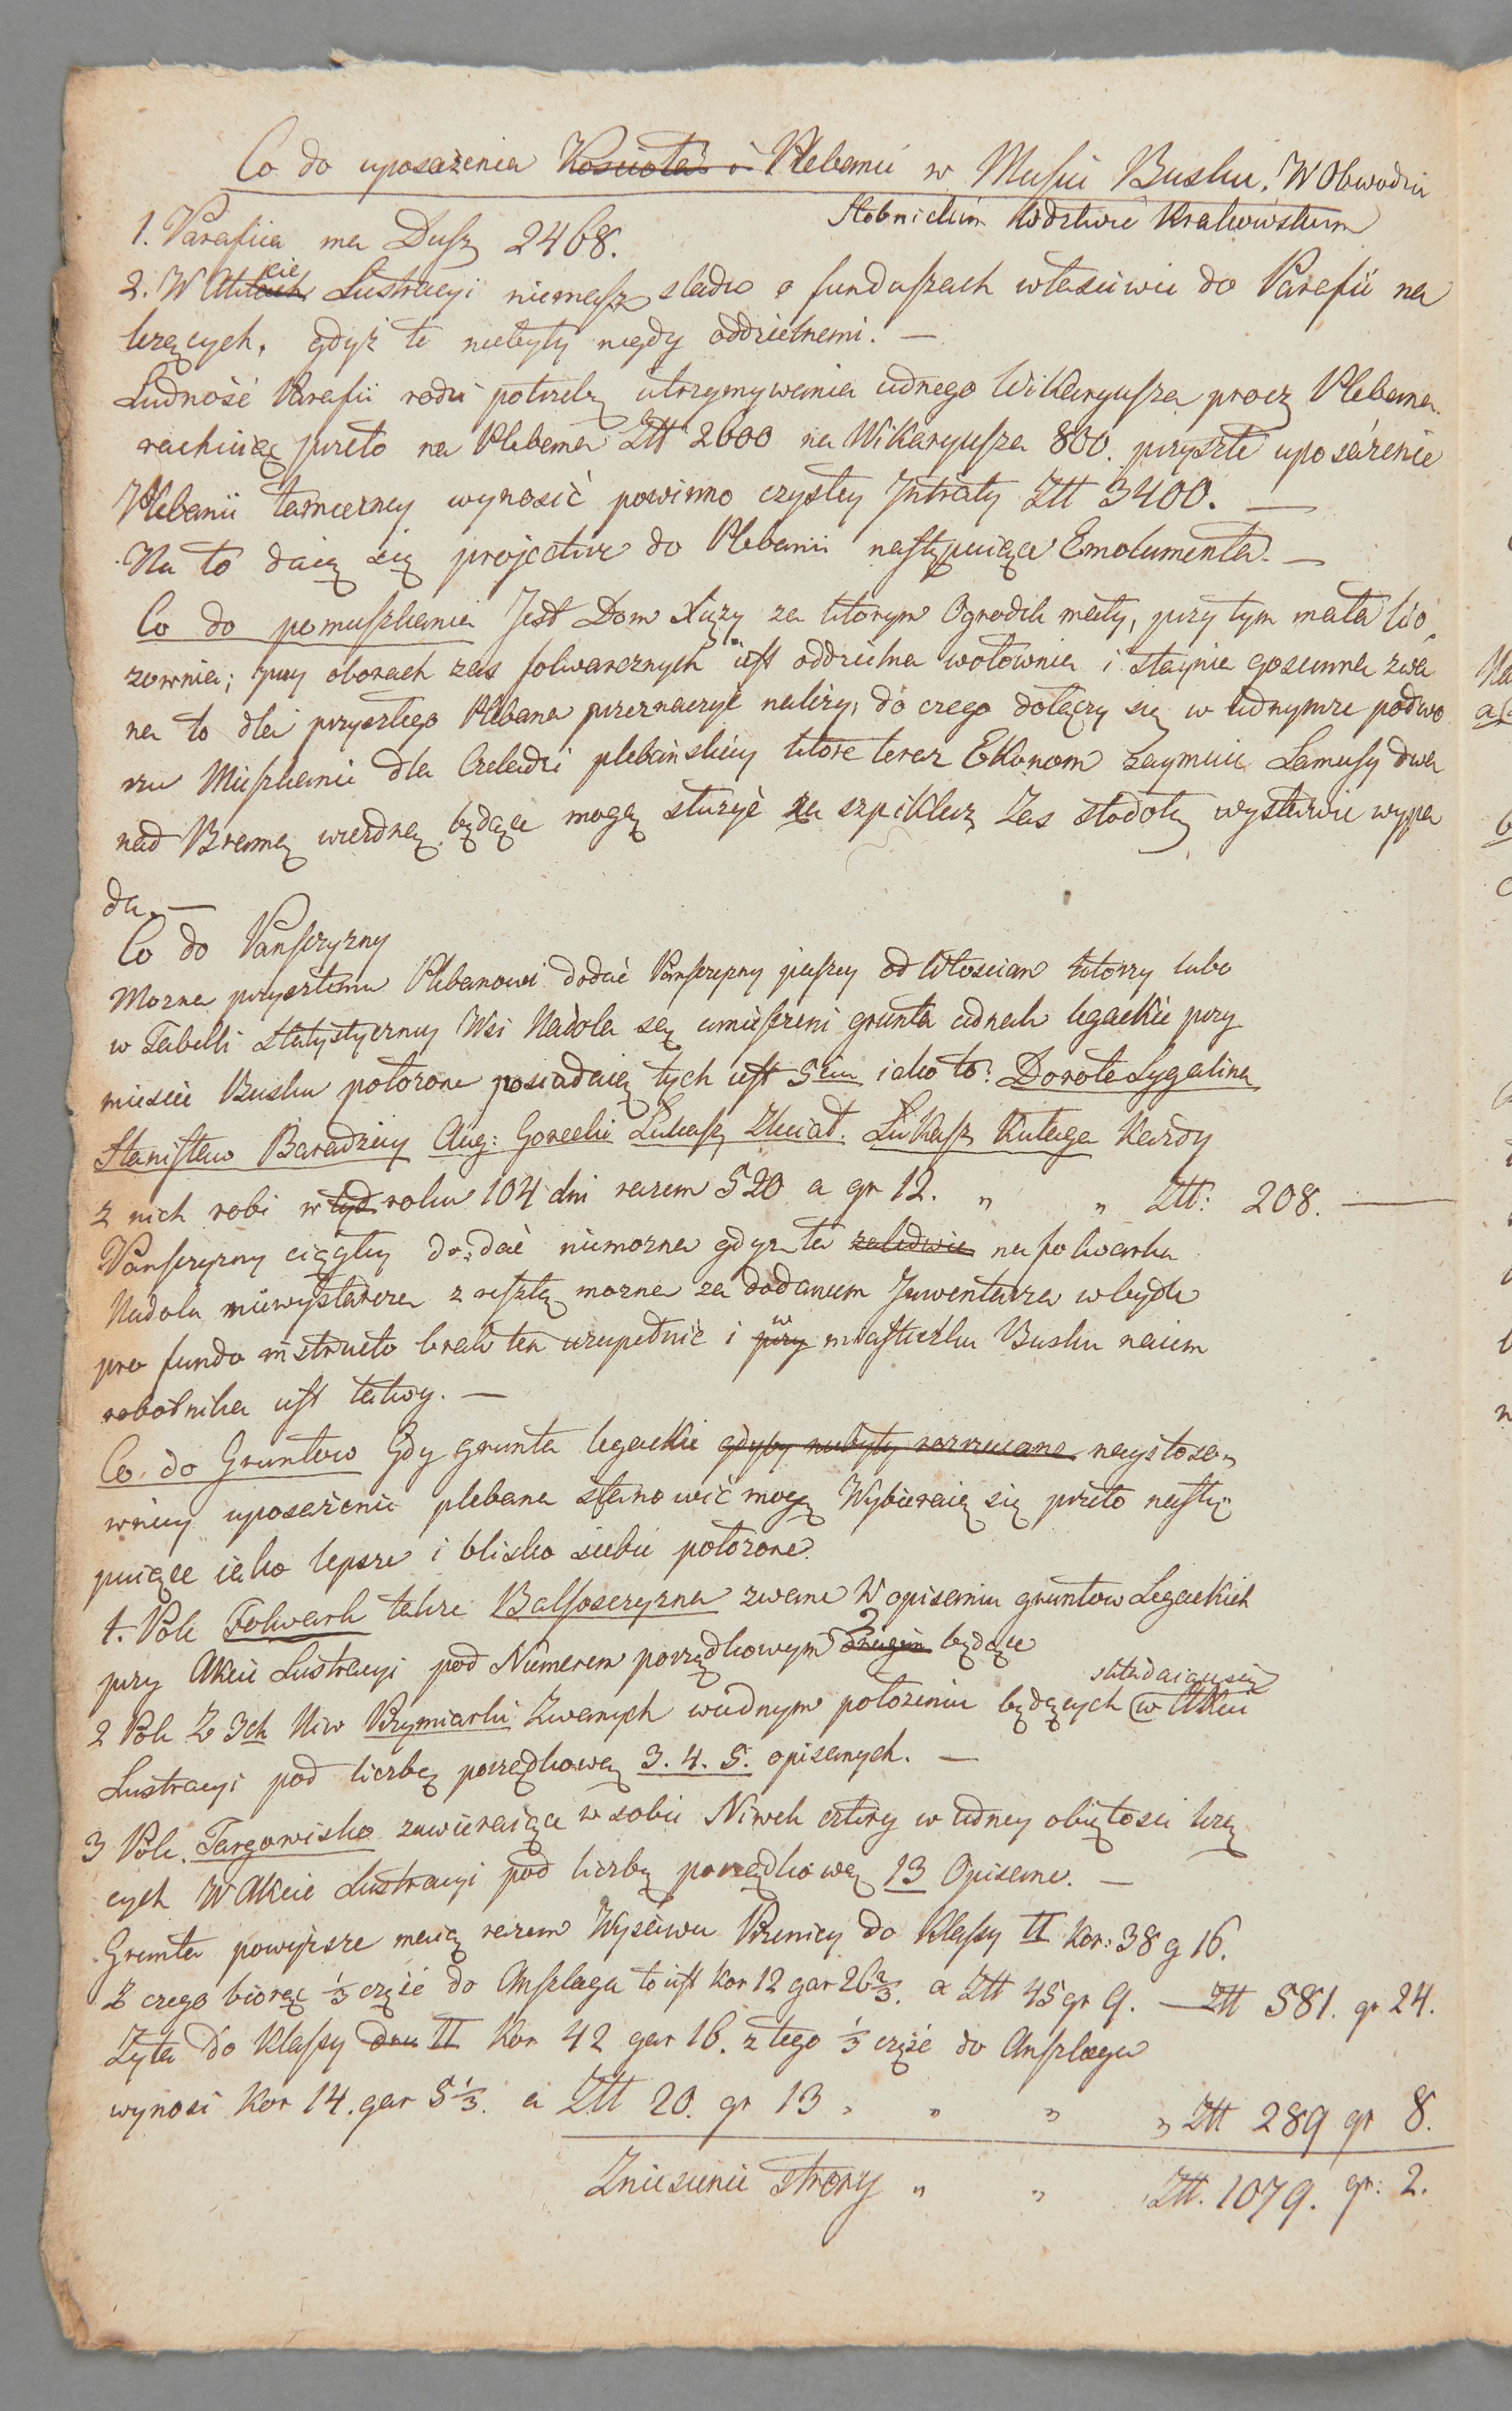 Co do uposażenia Koscioła i Plebanii w Miescie Busku. W Obwodzie
Stobnickim Wdztwie Krakowskim
1. Parafiia ma Dusz 2468.
2. W Akcie Lustracyi niemasz sladu o funduszach własciwie do Parafii na
lezących, gdyż te niebyły nigdy oddzielnemi. —
Ludność Parafii rodzi potrzebę utrzymywania iednego Wikaryusza procz Plebana.
rachuiąc przeto na Plebana Ztt 2600 na Wikaryusza 800. przyszłe uposażenie
Plebanii tamteczney wynosić powinno czystey Intraty Ztt 3400. —
Na to daią się projective do Plebanii następuiące Emolumenta. —
Co do pomieszkania Jest Dom Xięży za ktorym Ogrodek mały, przy tym mała Wo
zownia; przy oborach zas folwarcznych iest oddzielna wołownia i staynia goscinna zwa
na to dla przyszłego Plebana przeznaczyć należy, do czego dołączy się w iednymze podwo
rzu Mieszkanie dla Czeladzi plebańskiey ktore teraz Ekonom zaymuie Lamusy dwa
nad Bramą wiezdną będące mogą służyć za szpiklerz Zas stodołę wystawić wypa
da. —
Co do Panszczyzny
Mozna przyszłemu Plebanowi dodać Panszczyzny pieszey od Włoscian ktorzy lubo
w Tabelli Statystyczney Wsi Nadola są umieszczeni grunta iednak legackie przy
miescie Busku położone posiadaią tych iest 5ciu iako to: Dorota Lygalina
Stanisław Baradziey Aug: Gorecki Łukasz Zkuat. Łukasz Kutaga Każdy
z nich robi w tyd roku 104 dni razem 520 a gr 12. " " Ztt: 208. —
Panszczyzny ciągłey dodać niemozna gdyz ta zaledwie na folwarku
Nadolu niewystarcza z resztą mozna za dodaniem Inwentarza w bydle
pro fundo instructo brak ten uzupełnić i przy w miasteczku Busku naiem
robotnika iest łatwy. —
Co do Gruntow Gdy grunta legackie gdyby niebyły rozrzucone naystoso„
wniey uposażenie plebana stanowić mogą Wybieraią się przeto nastę„
puiące iako lepsze i blisko siebie położone.
1. Pole Folwark także Balsoszczyzna zwane W opisaniu gruntow Legackich
przy Akcie Lustracyi pod Numerem porządkowym drugim 2 będące
2 Pole Z 3ch Niw Prymiarki Zwanych w iednym położeniu będących składaiące się w Akcie
Lustracyi pod liczbą porządkową 3. 4. 5. opisanych. —
3 Pole Targowisko zawieraiące w sobie Niwek cztery w iedney obiętosci leżą
cych W Akcie Lustracyi pod liczbą porządkową 13 Opisane. —
Grunta powyższe maią razem Wysiewu Pszenicy do Klassy II Kor: 38 g 16.
Z czego biorąc 1/3 część do Anszlagu to iest Kor 12 gar 26 2/3. a Ztt 45 gr 9. — Ztt 581. gr 24.
Żyta Do Klassy dru II Kor 42 gar 16. z tego 1/3 część do Anszlagu
wynosi Kor 14. gar 5 1/3. a Ztt 20. gr 13 " " " " Ztt 289 gr 8.
Zniesienie Strony " " Ztt. 1079. gr: 2.